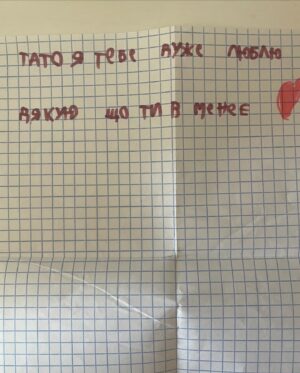 ТАТО Я ТЕБЕ ДУЖЕ ЛЮБЛЮ
ДЯКУЮ ЩО ТИ В МЕНЕ Є